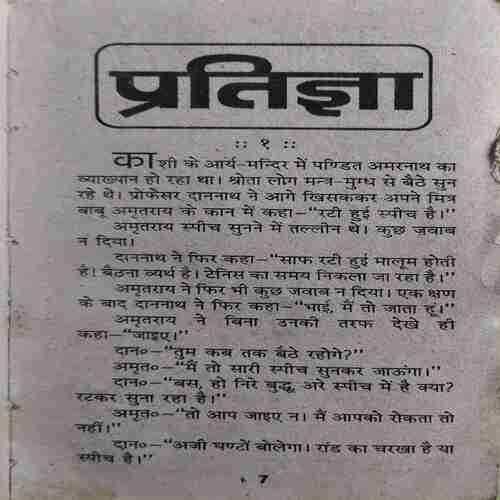 प्रतिज्ञा
:: १ ::
काशी के आर्य-मन्दिर में पण्डित अमरनाथ का
व्याख्यान हो रहा था। श्रोता लोग मन्त्र-मुग्ध से बैठे सुन
रहे थे। प्रोफेसर दाननाथ ने आगे खिसककर अपने मित्र
बाबू अमृतराय के कान में कहा—“रटी हुई स्पीच है।”
अमृतराय स्पीच सुनने में तल्लीन थे। कुछ जवाब
न दिया।
दाननाथ ने फिर कहा—“साफ रटी हुई मालूम होती
है! बैठना व्यर्थ है। टेनिस का समय निकला जा रहा है।”
अमृतराय ने फिर भी कुछ जवाब न दिया। एक क्षण
के बाद दाननाथ ने फिर कहा—“भाई, मैं तो जाता हूं।”
अमृतराय ने बिना उनकी तरफ देखे ही
कहा—“जाइए।”
दान०—“तुम कब तक बैठे रहोगे?”
अमृत०—“मैं तो सारी स्पीच सुनकर जाऊंगा।”
दान०—“बस, हो निरे बुद्धू, अरे स्पीच में है क्या?
रटकर सुना रहा है।”
अमृत०—“तो आप जाइए न। मैं आपको रोकता तो
नहीं।”
दान०—“अजी घण्टों बोलेगा। रांड का चरखा है या
स्पीच है।”
7